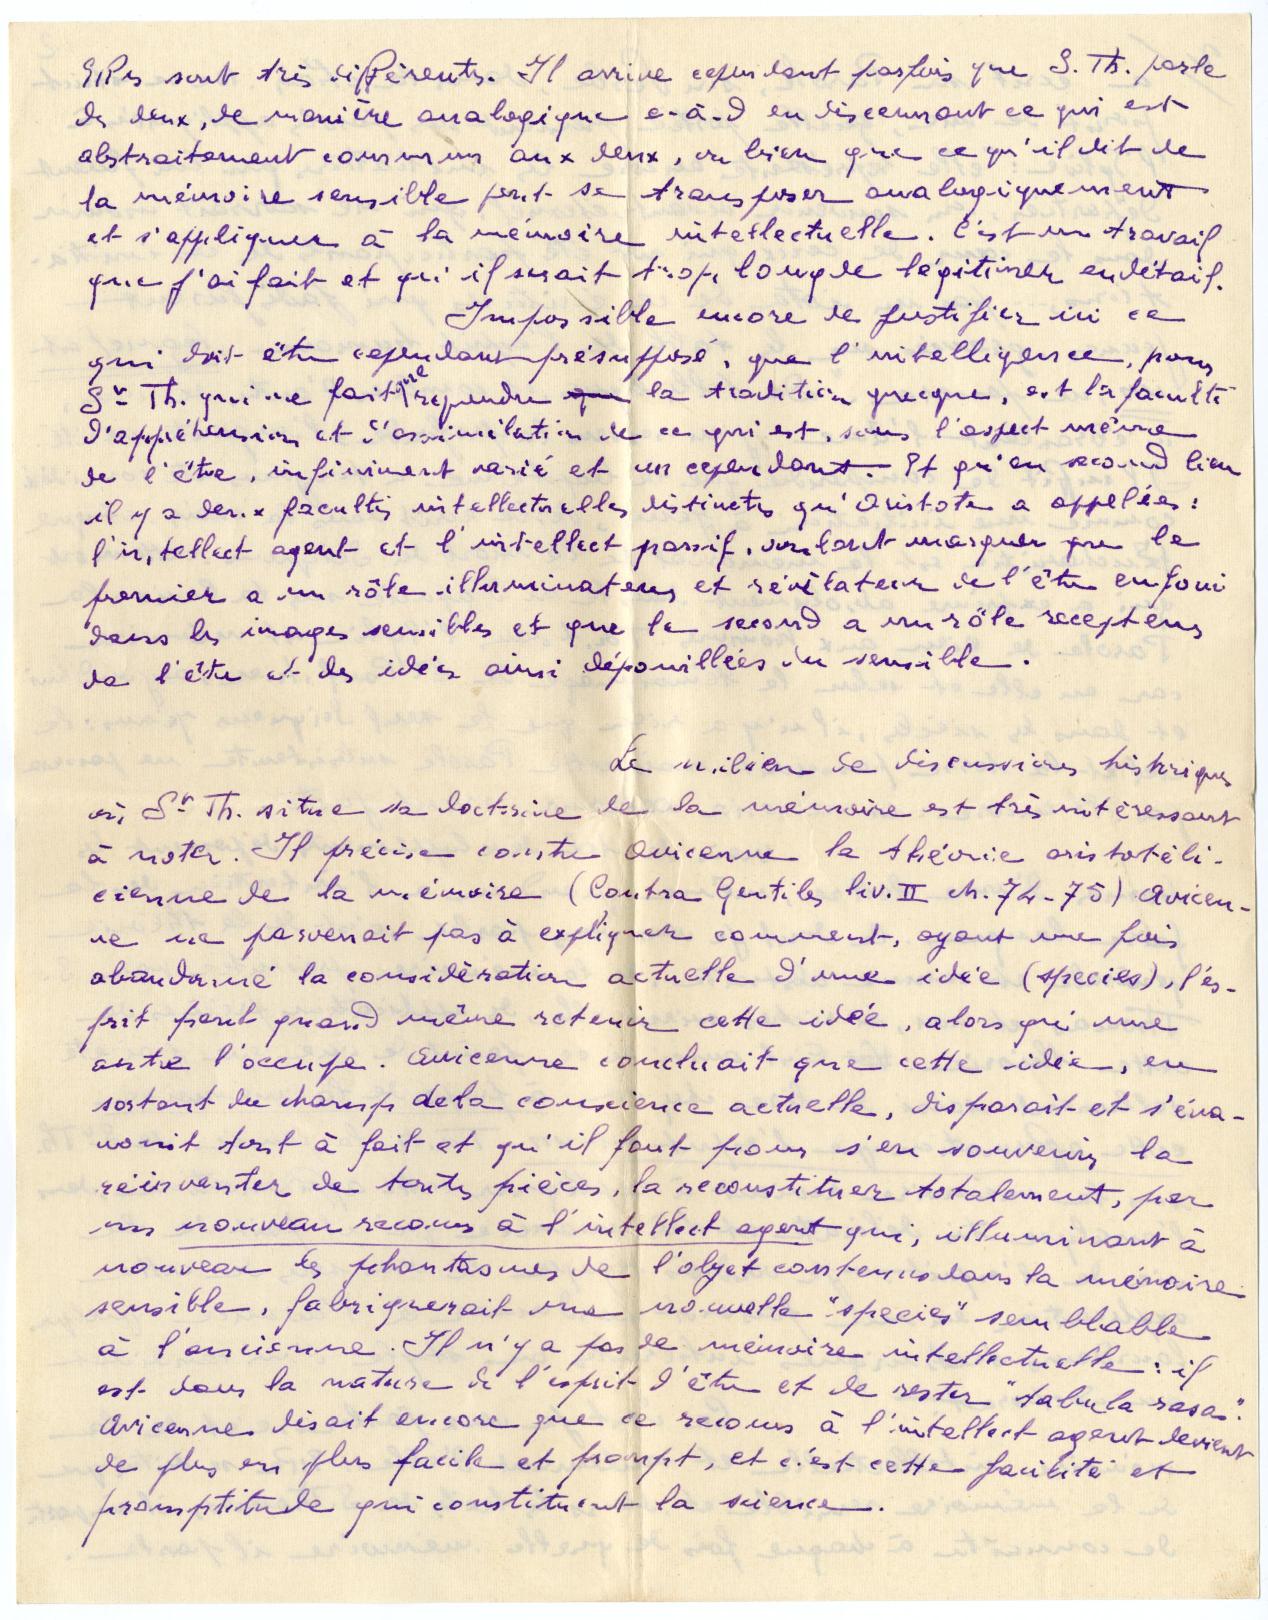 Elles sont très différents. Il arrive cependant parfois que S. Th. parle
des deux, de manière analogique c-à-d en discernant ce qui est
abstraitement commun aux deux, ou bien que ce qu'il dit de
la mémoire sensible peut se transposer analogiquement
et s'appliquer à la mémoire intellectuelle. C'est un travail
que j'ai fait et qu'il serait trop long de légitimer en détail.
Impossible encore de justifier ici ce
qui doit être cependant présupposé, que l'intelligence, pour
St Th. qui ne fait que reprendre la tradition grecque, est la faculté
d'appréhension et d'assimilation de ce qui est, sous l'aspect même
de l'être, infiniment varié et un cependant. Et qu'en second lieu
il y a deux facultés intellectuelles distinctes qu'Aristote a appelées :
l'intellect agent et l'intellect passif, voulant marquer que le
premier a un rôle illuminateur et révélateur de l'être enfoui
dans les images sensibles et que le second a un rôle recepteur
de l'être et des idées ainsi dépouillées du sensible.
Le milieu de discussions historiques
où St Th. situe sa doctrine de la mémoire est très intéressant
à noter. Il précise contre Avicenne la théorie aristotéli-
cienne de la mémoire (Contra Gentiles liv. II ch. 74-75) Avicen-
ne ne parvenait pas à expliquer comment, ayant une fois
abandonné la considération actuelle d'une idée (species), l'es-
prit peut quand même retenir cette idée, alors qu'une
autre l'occupe. Avicenne concluait que cette idée, en
sortant du champ de la conscience actuelle, disparait et s'éva-
nouit tout à fait et qu'il faut pour s'en souvenir la
réinventer de toutes pièces, la reconstituer totalement, par
un nouveau recours à l'intellect agent qui, illuminant à
nouveau les phantasmes de l'objet contenus dans la mémoire
sensible, fabriquerait une nouvelle "species" semblable
à l'ancienne. Il n'y a pas de mémoire intellectuelle : il
est dans la nature de l'esprit d'être et de rester "tabula rasa".
Avicenne disait encore que ce recours à l'intellect agent devient
de plus en plus facile et prompt, et c'est cette facilité et
promptitude qui constituent la science.